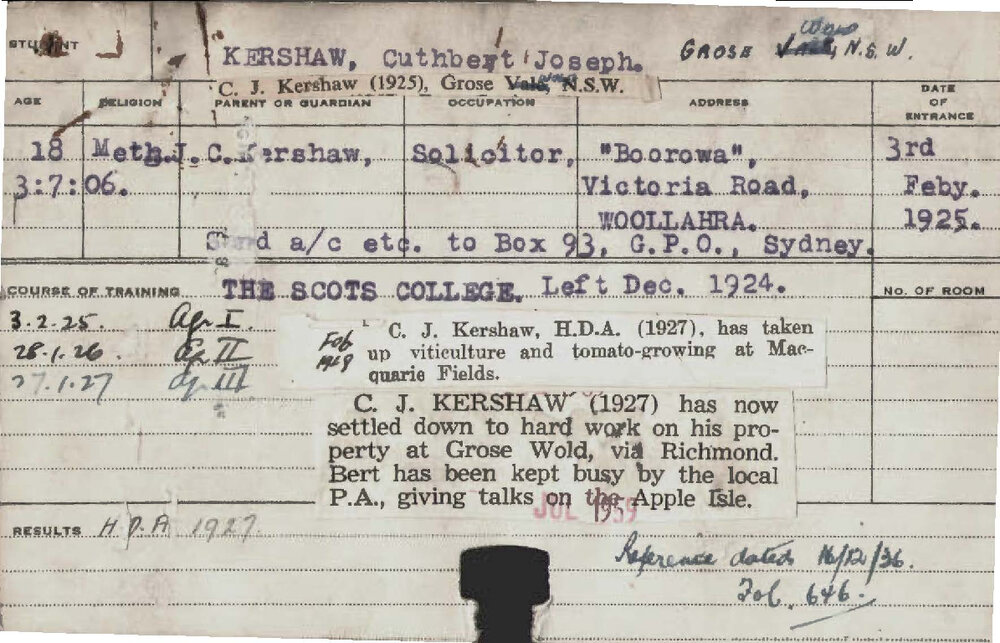 STUDENT
KERSHAW, Cuthbert Joseph. GROSE Vale, Wold N.S.W.
C. J. Kershaw (1925), Grose Vale, N.S.W.
AGE RELIGION PARENT OR GUARDIAN OCCUPATION ADDRESS DATE OF ENTRANCE
18 Meth. J. C. Kershaw, Solicitor, "Boorowa", 3rd
3:7:06. Victoria Road, Feby.
WOOLLAHRA. 1925.
Send a/c etc. to Box 93, G.P.O., Sydney.
COURSE OF TRAINING THE SCOTS COLLEGE. Left Dec. 1924. NO. OF ROOM
3.2.25. Ag I.
28.1.26. Ag II
27.1.27 Ag III
Feb
C. J. Kershaw, H.D.A. (1927), has taken
up viticulture and tomato-growing at Mac-
quarie Fields.
C. J. KERSHAW (1927) has now
settled down to hard work on his pro-
perty at Grose Wold, via Richmond.
Bert has been kept busy by the local
P.A., giving talks on the Apple Isle.
JUL 1959
RESULTS H.D.A 1927.
Reference dated 16/12/36.
Fol. 646.